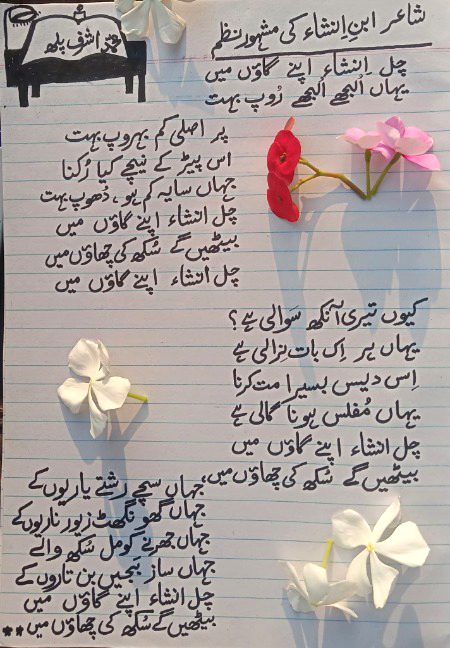 شاعر ابنِ اِنشاء کی مشہور نظم
محمد اشرف پلھ
چل اِنشاء اپنے گاؤں میں
یہاں اُلجھے اُلجھے رُوپ بہت
پر اصلی کم بہروپ بہت
اس پیڑ کے نیچے کیا رُکنا
جہاں سایہ کم ہو، دُھوپ بہت
چل انشاء اپنے گاؤں میں
بیٹھیں گے سُکھ کی چھاؤں میں
چل انشاء اپنے گاؤں میں
کیوں تیری آنکھ سَوالی ہے؟
یہاں ہر اِک بات نرالی ہے
اِس دیس بسیرا مت کرنا
یہاں مُفلس ہونا گالی ہے
چل انشاء اپنے گاؤں میں
بیٹھیں گے سُکھ کی چھاؤں میں،
جہاں سچے رشتے یاریوں کے
جہاں گھونگھٹ زیور ناریوں کے
جہاں جھرنے کومل سُکھ والے
جہاں ساز بَجیں بن تاروں کے
چل انشاء اپنے گاؤں میں
بیٹھیں گے سُکھ کی چھاؤں میں**